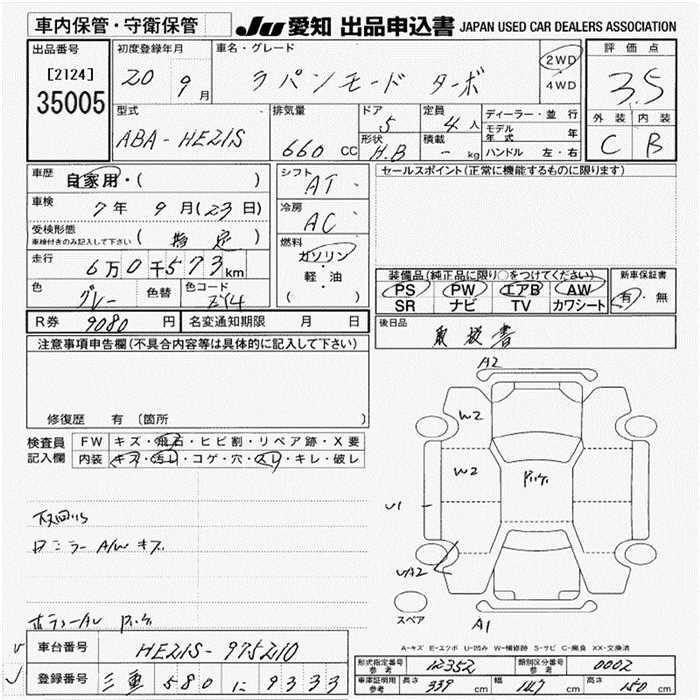 車内保管・守衛保管 JU 愛知 出品申込書 JAPAN USED CAR DEALERS ASSOCIATION
出品番号 初度登録年月 車名・グレード 評価点
[2124]
35005
20 9月 ラパンモード ターボ 2WD・4WD 3.5
型式 排気量 ドア 定員 ディーラー・並行 外装 内装
ABA-HE21S 660 CC 5 4人 モデル年式 年 C B
形状 H.B 積載 - kg ハンドル 左・右
車歴 自家用・( ) シフト AT セールスポイント(正常に機能するものに限ります)
車検 7年 9月(23日) 冷房 AC
受検形態 車検付きのみ記入して下さい (指定) 燃料 ガソリン・軽・油 ( )
走行 6万0千573km
色 グレー 色替 色コード ZY4
装備品(純正品に限り○をつけてください) 新車保証書
PS PW エアB AW 有・無
SR ナビ TV カワシート
R券 9080円 名変通知期限 月 日 後日品 取扱書
注意事項申告欄(不具合内容等は具体的に記入して下さい)
修復歴 有(箇所 )
検査員 FW キズ・飛石・ヒビ割・リペア跡・X要
記入欄 内装 キズ・汚レ・コゲ・穴・スレ・キレ・破レ
A2
W2
W2
U1
A1
スペア
ロミラー A/W キズ
A-キズ E-エクボ U-凹み W-補修跡 S-サビ C-腐食 XX-交換済
車台番号 HE21S-975210
登録番号 三重 580 に 9333
形式指定番号 参考 12352 類別区分番号 参考 0002
車庫証明用 参考 長さ 339cm 幅 147cm 高さ 150cm